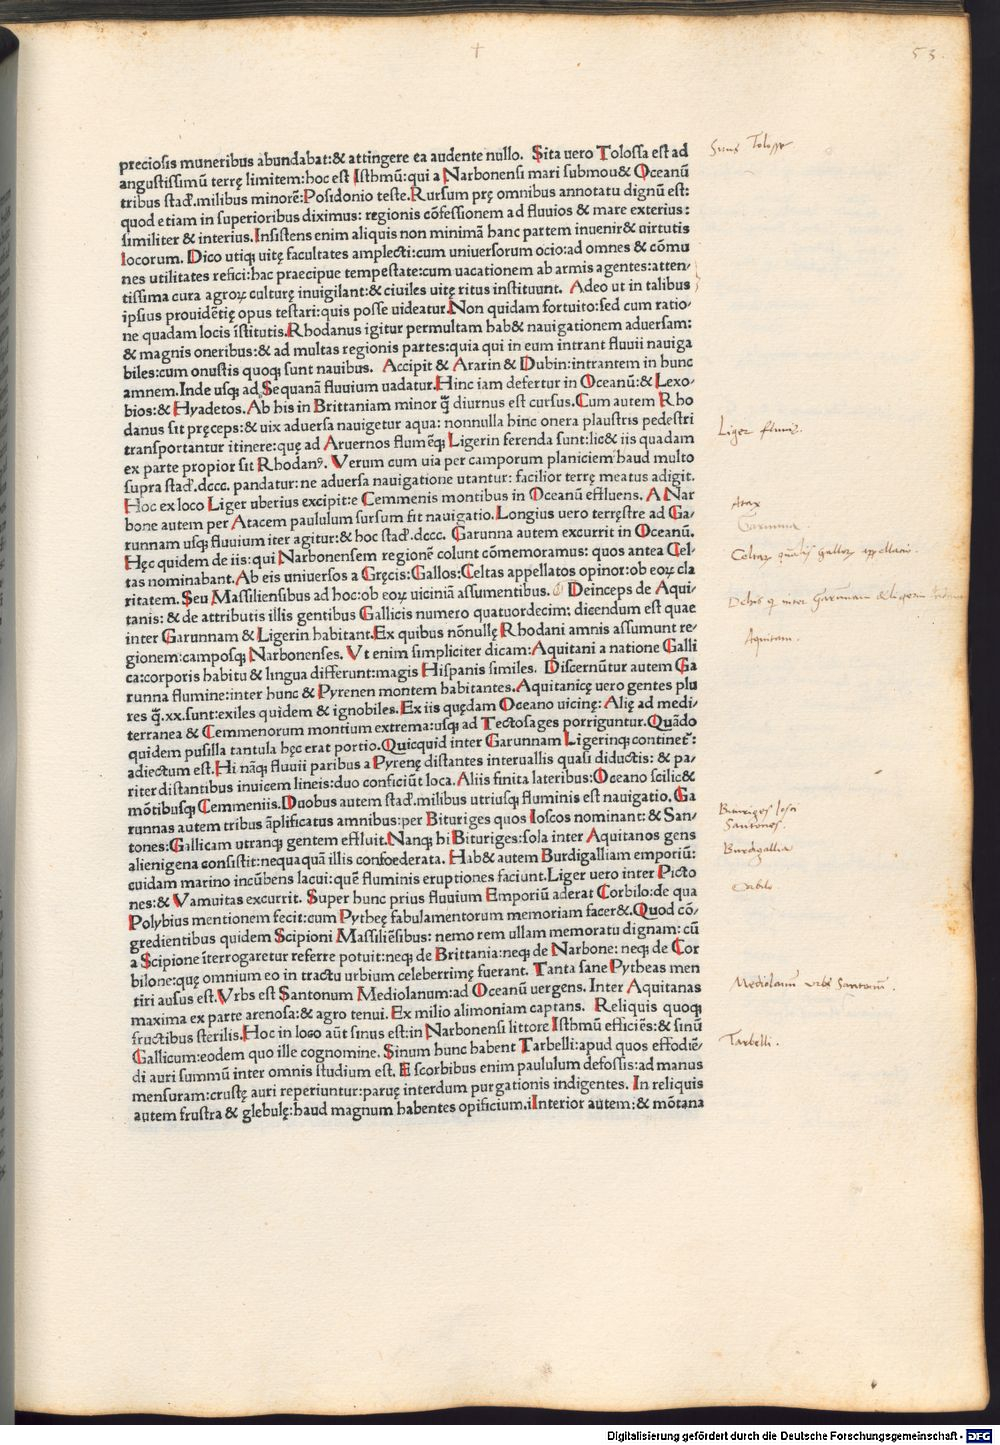 53.
preciosis muneribus abundabat:& attingere ea audente nullo. Sita uero Tolossa est ad
angustissimū terrę limitem:hoc est Isthmū:qui a Narbonensi mari submou& Oceanū
tribus stad̄.milibus minorē:Posidonio teste.Rursum prę omnibus annotatu dignū est:
quod etiam in superioribus diximus: regionis cōfessionem ad fluuios & mare exterius:
similiter & interius.Insistens enim aliquis non minimā hanc partem inuenir& uirtutis
locorum. Dico utiq; uitę facultates amplecti:cum uniuersorum ocio:ad omnes & cōmu
nes utilitates refici:hac praecipue tempestate:cum uacationem ab armis agentes:atten/
tissima cura agroꝝ culturę inuigilant:& ciuiles uitę ritus instituunt. Adeo ut in talibus
ipsius prouidētię opus testari:quis posse uideatur.Non quidam fortuito:sed cum ratio/
ne quadam locis īstitutis.Rhodanus igitur permultam hab& nauigationem aduersam:
& magnis oneribus:& ad multas regionis partes:quia qui in eum intrant fluuii nauiga
biles:cum onustis quoq; sunt nauibus. Accipit & Ararin & Dubin:intrantem in hunc
amnem.Inde usq; ad Sequanā fluuium uadatur.Hinc iam defertur in Oceanū:& Lexo/
bios:& Hyadetos.Ab his in Brittaniam minor q̄ diurnus est cursus.Cum autem Rho
danus sit pręceps:& uix aduersa nauigetur aqua: nonnulla hinc onera plaustris pedestri
transportantur itinere:quę ad Aruernos flumēq; Ligerin ferenda sunt:lic& iis quadam
ex parte propior sit Rhodanꝰ. Verum cum uia per camporum planiciem haud multo
supra stad̄.dccc. pandatur: ne aduersa nauigatione utantur: facilior terrę meatus adigit.
Hoc ex loco Liger uberius excipit:e Cemmenis montibus in Oceanū effluens. A Nar
bone autem per Atacem paululum sursum fit nauigatio.Longius uero terręstre ad Ga/
runnam usq; fluuium iter agitur:& hoc stad̄.dccc. Garunna autem excurrit in Oceanū.
Hęc quidem de iis:qui Narbonensem regionē colunt cōmemoramus: quos antea Cel/
tas nominabant.Ab eis uniuersos a Gręcis:Gallos:Celtas appellatos opinor:ob eoꝝ cla
ritatem. Seu Massiliensibus ad hoc:ob eoꝝ uiciniā assumentibus. Deinceps de Aqui/
tanis:& de attributis illis gentibus Gallicis numero quatuordecim: dicendum est quae
inter Garunnam & Ligerin habitant.Ex quibus nōnullę Rhodani amnis assumunt re/
gionem:camposq; Narbonenses. Vt enim simpliciter dicam:Aquitani a natione Galli
ca:corporis habitu & lingua differunt:magis Hispanis similes. Discernūtur autem Ga
runna flumine:inter hunc & Pyrenen montem habitantes.Aquitanicę uero gentes plu
res q̄.xx.sunt:exiles quidem & ignobiles.Ex iis quędam Oceano uicinę: Alię ad medi/
terranea & Cemmenorum montium extrema:usq; ad Tectosages porriguntur.Quādo
quidem pusilla tantula hęc erat portio.Quicquid inter Garunnam Ligerinq; continet᷑:
adiectum est.Hi nāq; fluuii paribus a Pyrenę distantes interuallis quasi diductis: & pa/
riter distantibus inuicem lineis:duo conficiūt loca.Aliis finita lateribus:Oceano scilic&
mōtibusq; Cemmeniis.Duobus autem stad̄.milibus utriusq; fluminis est nauigatio.Ga
runnas autem tribus āplificatus amnibus:per Bituriges quos Ioscos nominant:& San/
tones:Gallicam utranq; gentem effluit.Nanq; hi Bituriges:sola inter Aquitanos gens
alienigena consistit:nequaquā illis confoederata. Hab& autem Burdigalliam emporiū:
cuidam marino incūbens lacui:quē fluminis eruptiones faciunt.Liger uero inter Picto
nes:& Vamuitas excurrit. Super hunc prius fluuium Emporiū aderat Corbilo:de qua
Polybius mentionem fecit:cum Pytheę fabulamentorum memoriam facer&.Quod cō/
gredientibus quidem Scipioni Massiliēsibus: nemo rem ullam memoratu dignam: cū
a Scipione īterrogaretur referre potuit:neq; de Brittania:neq; de Narbone: neq; de Cor
bilone:quę omnium eo in tractu urbium celeberrimę fuerant. Tanta sane Pytheas men
tiri ausus est.Vrbs est Santonum Mediolanum:ad Oceanū uergens. Inter Aquitanas
maxima ex parte arenosa:& agro tenui. Ex milio alimoniam captans. Reliquis quoq;
fructibus sterilis.Hoc in loco aūt sinus est:in Narbonensi littore Isthmū efficiēs:& sinū
Gallicum:eodem quo ille cognomine. Sinum hunc habent Tarbelli:apud quos effodiē/
di auri summū inter omnis studium est. E scorbibus enim paululum defossis:ad manus
mensuram:crustę auri reperiuntur:paruę interdum purgationis indigentes. In reliquis
autem frustra & glebulę:haud magnum habentes opificium.iInterior autem:& mōtana
Situs Tolosse
Liger fluuiꝰ.
Atax
Garunna.
Celtas gallos appellari.
Aquitani.
Bituriges Iosci
Santones.
Burdigallia
Corbilo
Mediolanū urbs Santonū.
Tarbelli.
Digitalisierung gefördert durch die Deutsche Forschungsgemeinschaft - DFG